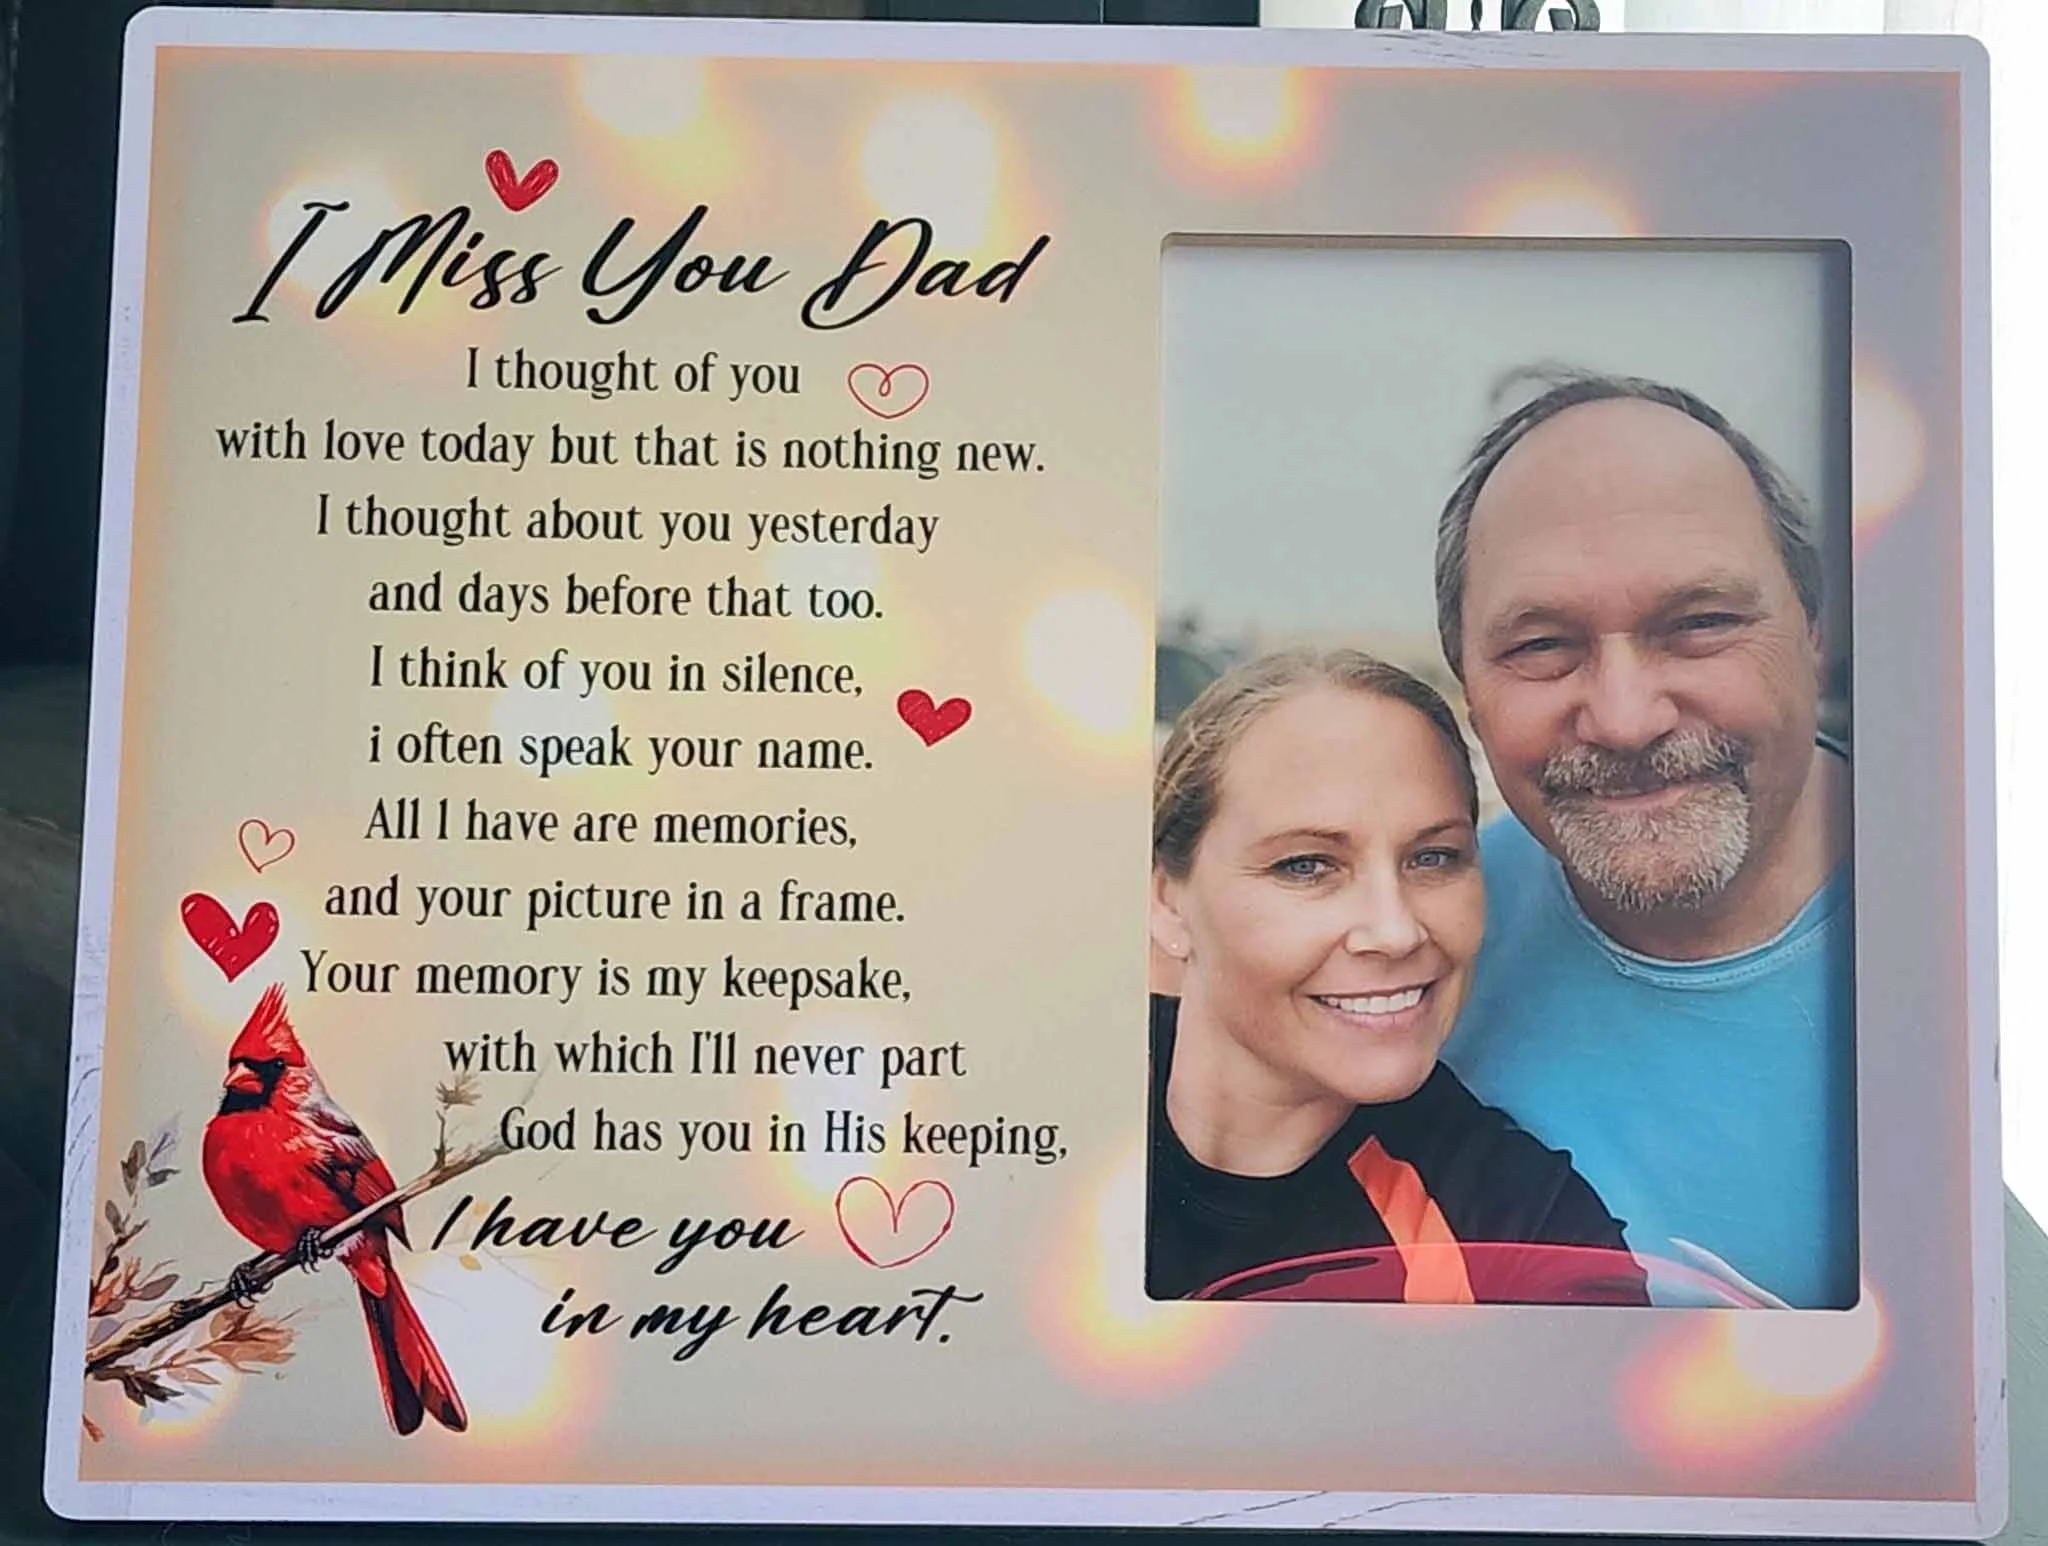 I Miss You Dad
I thought of you
with love today but that is nothing new.
I thought about you yesterday
and days before that too.
I think of you in silence,
i often speak your name.
All I have are memories,
and your picture in a frame.
Your memory is my keepsake,
with which I'll never part
God has you in His keeping,
I have you
in my heart.